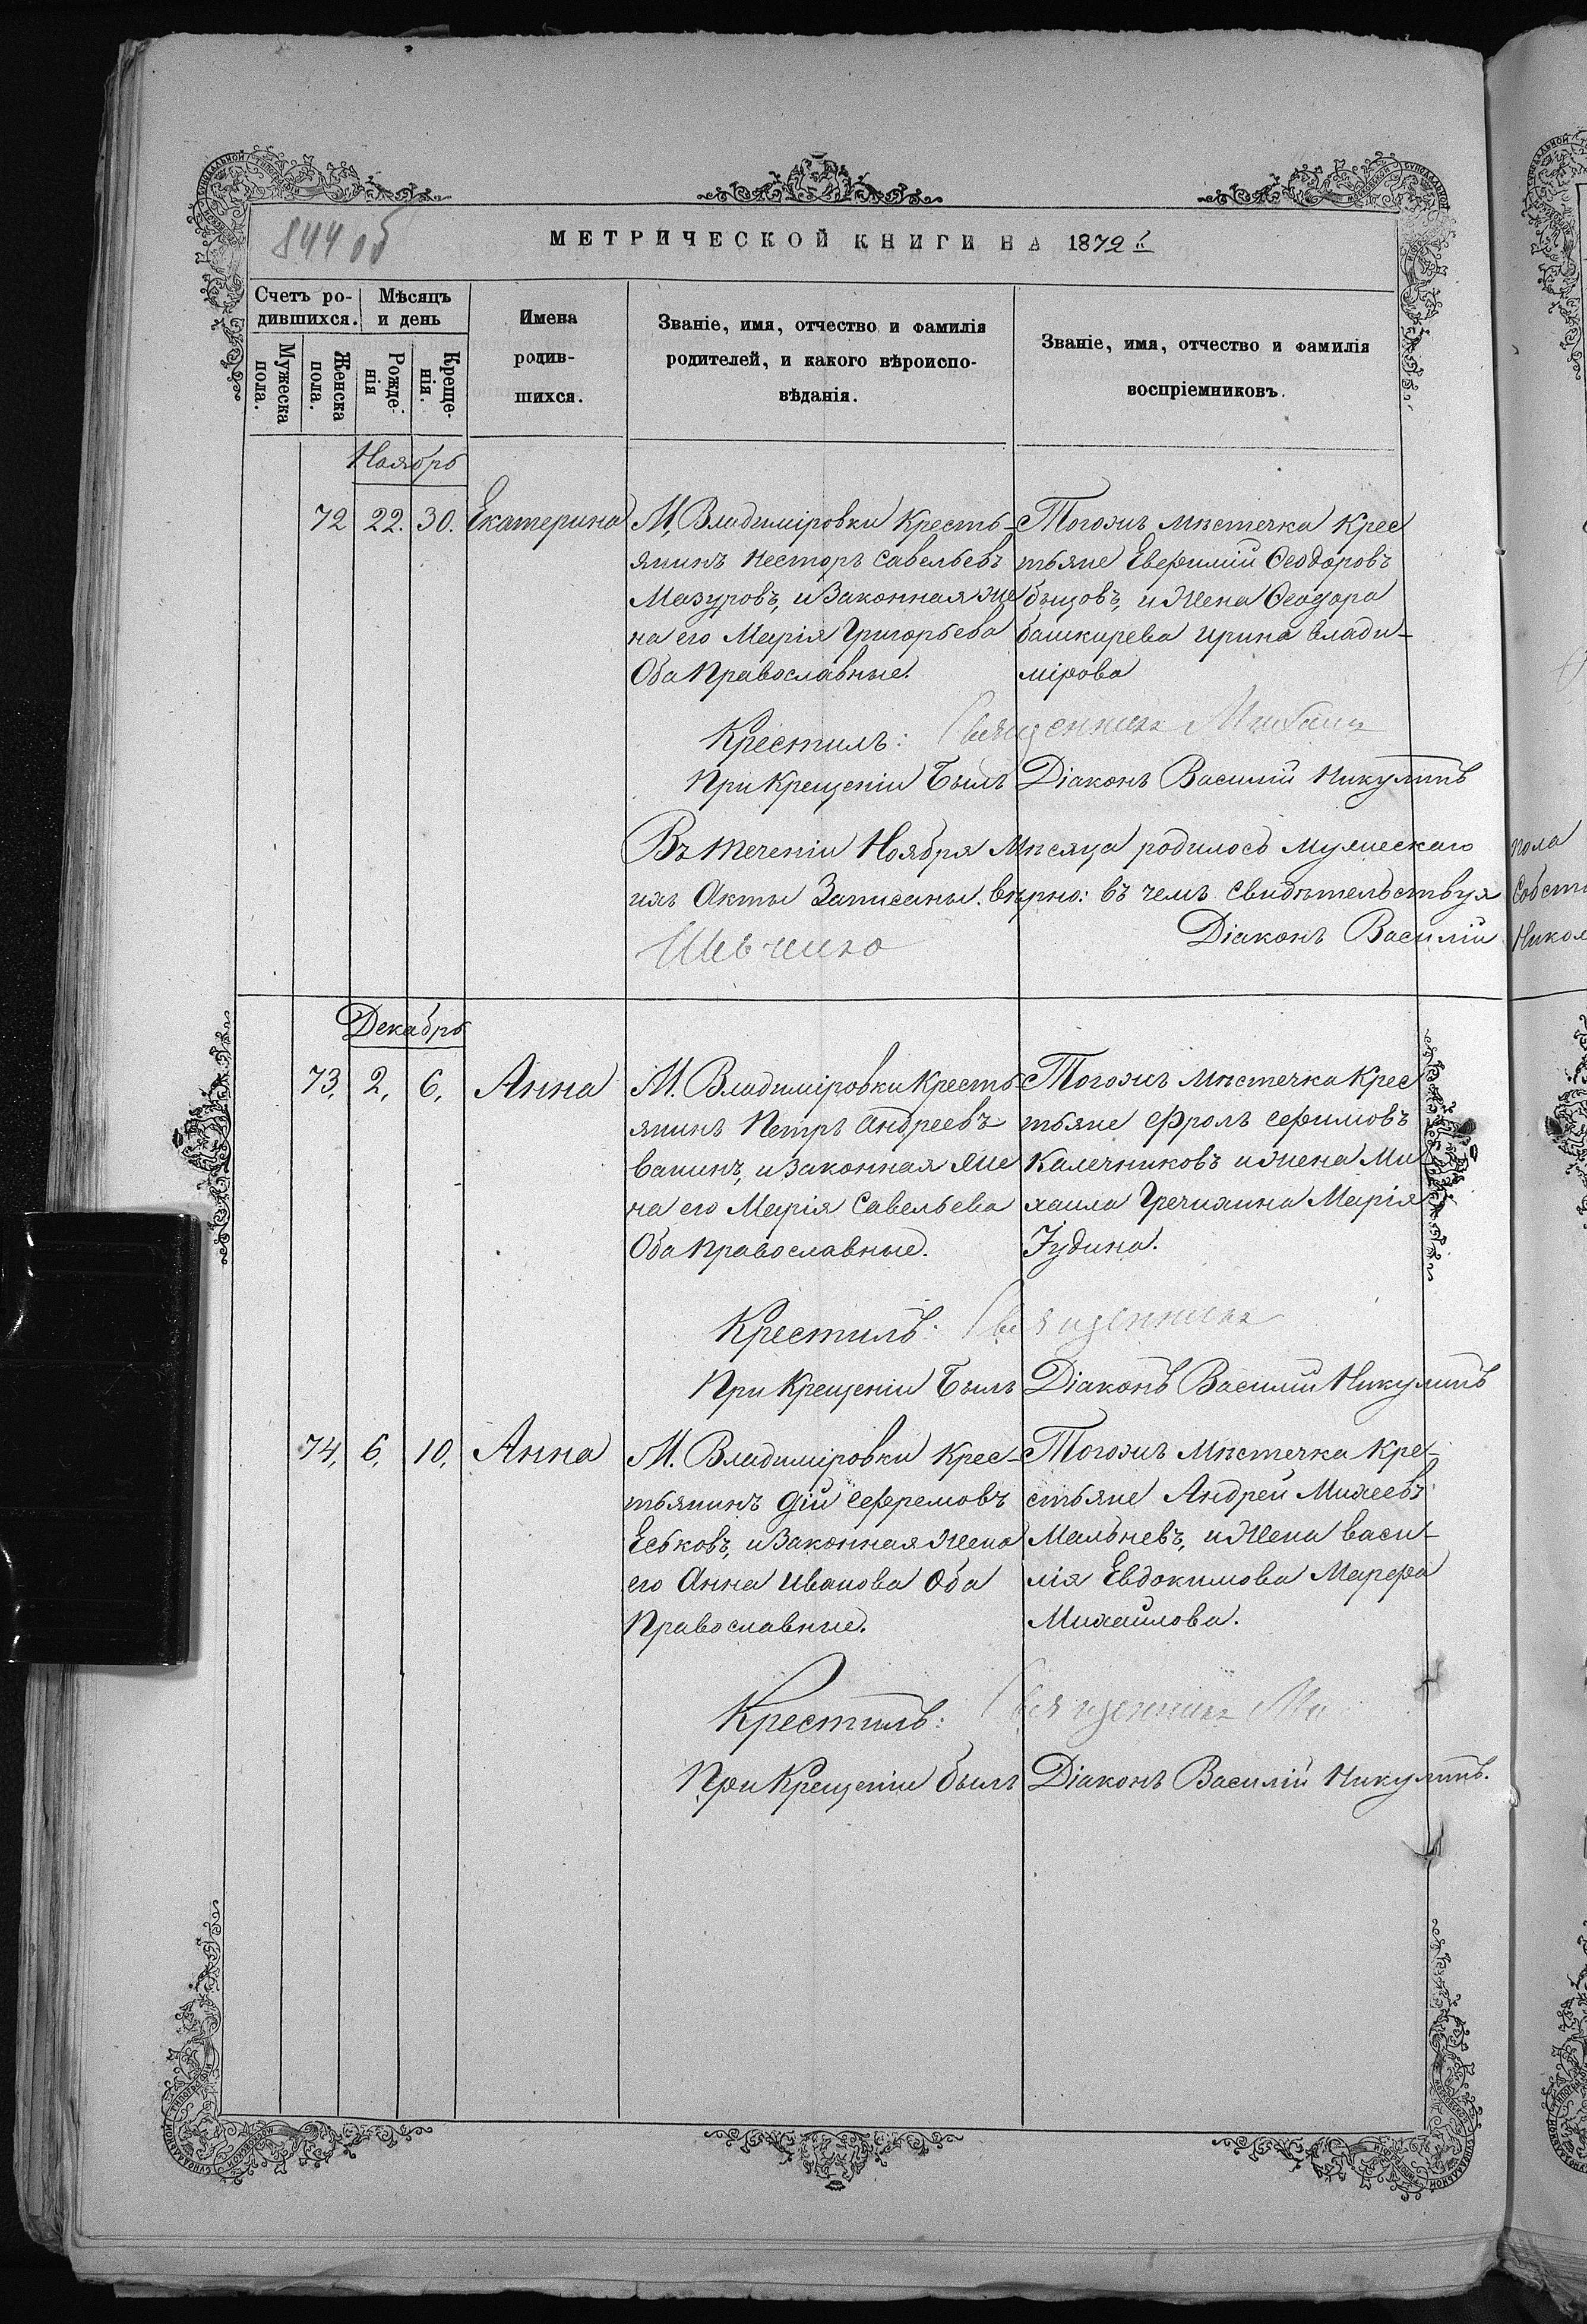 844 об
МЕТРИЧЕСКОЙ КНИГИ НА 1872 й
Счетъ ро-
дившихся.
Мѣсяцъ
и день
Имена
родив-
шихся.
Званіе, имя, отчество и фамилія
родителей, и какого вѣроиспо-
вѣданія.
Званіе, имя, отчество и фамилія
воспріемниковъ.
Мужеска
пола.
Женска
пола.
Рожде-
нія
Креще-
нія.
Ноябрь
72 22. 30. Екатерина
М. Владиміровки Кресть-
янинъ Несторъ Савельевъ
Мазуровъ, и Законная же
на его Марія Григорьева
Оба Православные.
Тогожъ мѣстечка Крес
тьяне Евфимій Ѳеодоровъ
и Жена Ѳеодора
башкирева Ирина Влади-
мірова
Крестилъ: Священникъ Михаилъ
При Крещеніи Былъ Діаконъ Василій Никулинъ
Въ теченіи Ноября Мѣсяца родилось мужескаго пола
ихъ Акты Записаны вѣрно: въ чемъ Свидѣтельствуя
Діаконъ Василій
Декабрь
73, 2, 6, Анна
М. Владиміровки Кресть-
янинъ Петръ Андреевъ
Ванинъ, и Законная же
на его Марія Савельева
Оба Православные.
Тогожъ Мѣстечка Крес
тьяне Фролъ Ефимовъ
Калечниковъ и жена Ми
хаила Гречихина Марія
Іудина.
Крестилъ: Священникъ
При Крещеніи Былъ Діаконъ Василій Никулинъ
74, 6, 10, Анна
М. Владиміровки Крес-
тьянинъ Дій Ефремовъ
Еськовъ, и Законная Жена
его Анна Иванова Оба
Православные.
Тогожъ Мѣстечка Кре-
стьяне Андрей Михеевъ
Мальневъ, и Жена Васи-
лія Евдокимова Марфа
Михаилова.
Крестилъ: Священникъ Ми
При Крещеніи былъ Діаконъ Василій Никулинъ.